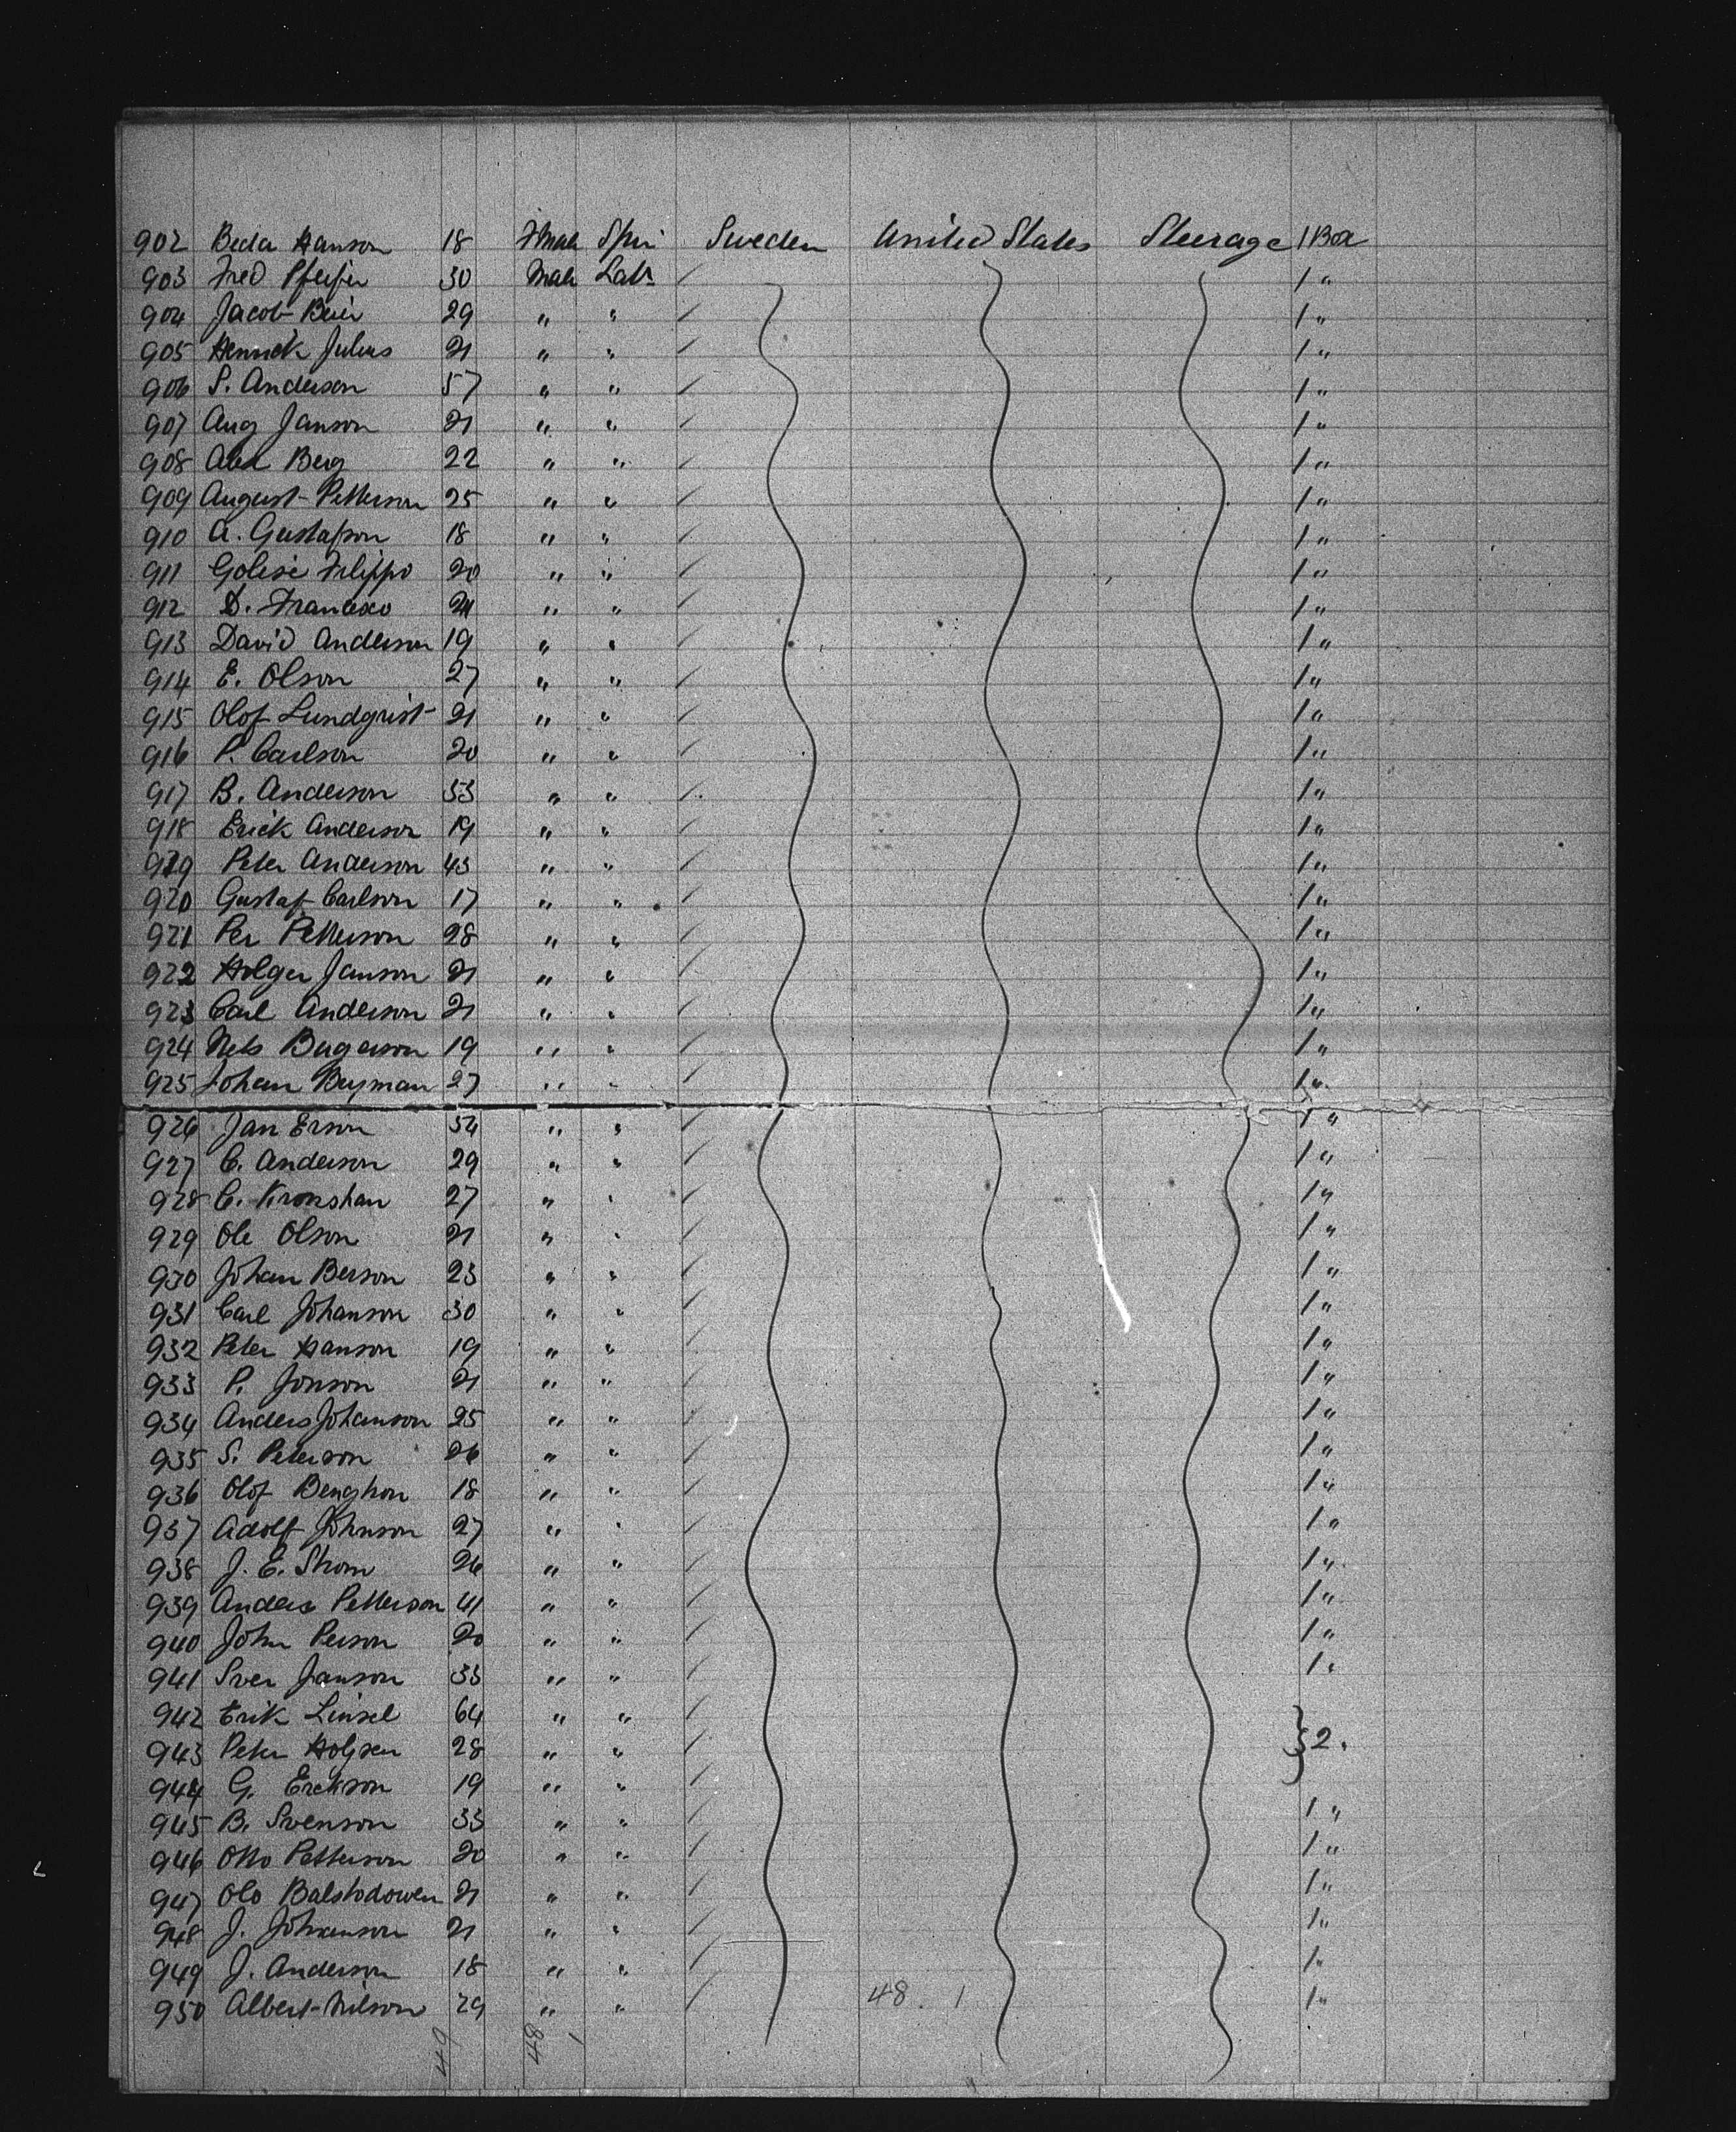 902 Beda Hanson 18 Fmale Spin Sweden United States Steerage 1 Box
903 Fred Pfeifer 30 Male Labr 1 "
904 Jacob Beier 29 " " 1 "
905 Henrick Julius 21 " " 1 "
906 S. Anderson 57 " " 1 "
907 Aug Janson 21 " " 1 "
908 Axel Berg 22 " " 1 "
909 August Petterson 25 " " 1 "
910 A. Gustafson 18 " " 1 "
911 Golesi Filippo 20 " " 1 "
912 D. Francesco " " 1 "
913 David Anderson 19 " " 1 "
914 E. Olson 27 " " 1 "
915 Olof Lundqvist 21 " " 1 "
916 P. Carlson 20 " " 1 "
917 B. Anderson 53 " " 1 "
918 Erick Anderson 19 " " 1 "
919 Peter Anderson 43 " " 1 "
920 Gustaf Carlson 17 " " 1 "
921 Per Petterson 28 " " 1 "
922 Holger Janson 21 " " 1 "
923 Carl Anderson 21 " " 1 "
924 Nels Bugerson 19 " " 1 "
925 Johan Buyman 27 " " 1 "
926 Jan Erson 54 " " 1 "
927 C. Anderson 29 " " 1 "
928 C. Kronshan 27 " " 1 "
929 Ole Olson 21 " " 1 "
930 Johan Berson 23 " " 1 "
931 Carl Johanson 30 " " 1 "
932 Peter Hanson 19 " " 1 "
933 P. Jonson 21 " " 1 "
934 Anders Johanson 25 " " 1 "
935 S. Peterson 26 " " 1 "
936 Olof Benghon 18 " " 1 "
937 Adolf Johnson 27 " " 1 "
938 J. E. Strom 26 " " 1 "
939 Anders Petterson 41 " " 1 "
940 John Person 20 " " 1 "
941 Sven Janson 33 " " 1 "
942 Erik Linsel 64 " "
943 Peter Holgsen 28 " " } 2 "
944 G. Erekson 19 " "
945 B. Svenson 33 " " 1 "
946 Otto Petterson 20 " " 1 "
947 Olo Balstodowen 21 " " 1 "
948 J. Johanson 21 " " 1 "
949 J. Anderson 18 " " 1 "
950 Albert Nilson 29 " " 48. 1 1 "
49 48 1